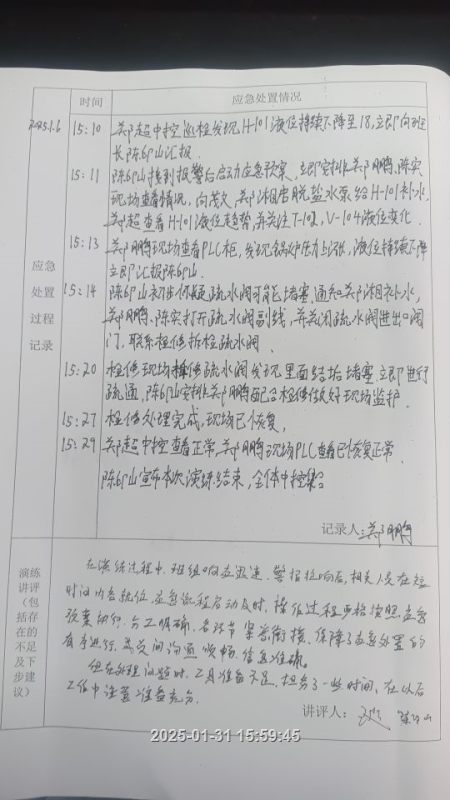 时间
应急处置情况
2025.1.6
15:10
郑超中控巡检发现H-101液位持续下降至18,立即向班
长陈邱山汇报.
15:11
陈邱山接到报警后启动应急预案,立即安排郑鹏、陈实
现场查看情况,向茂文、郑湘启脱盐水泵给H-101补水,
郑超查看H-101液位趋势,并关注T-102,V-104液位变化.
15:13
郑鹏现场查看PLC柜,发现锅炉压力上涨,液位持续下降
立即汇报陈邱山.
应急
处置
过程
记录
15:14
陈邱山初步怀疑疏水阀可能堵塞,通知郑湘补水,
郑鹏、陈实打开疏水阀副线,并关闭疏水阀进出口阀
门,联系检修拆检疏水阀.
15:20
检修现场拆修疏水阀发现里面结垢堵塞,立即进行
疏通,陈邱山安排郑鹏配合检修做好现场监护.
15:27
检修处理完成,现场已恢复,
15:29
郑超中控查看正常,郑鹏现场PLC查看已恢复正常.
陈邱山宣布本次演练结束,全体中控集合
记录人:郑鹏
演练
讲评
(包
括存
在的
不足
及下
步建
议)
在演练过程中,班组响应迅速,警报拉响后,相关人员在短
时间内各就位,应急流程启动及时,操作过程严格按照应急
预案执行,分工明确,各环节紧密衔接,保障了应急处置的
有序进行,成员间沟通顺畅,信息准确.
但在处理问题时,工具准备不足,担务了一些时间,在以后
工作中注意准备充分.
讲评人:
陈邱山
2025-01-31 15:59:45